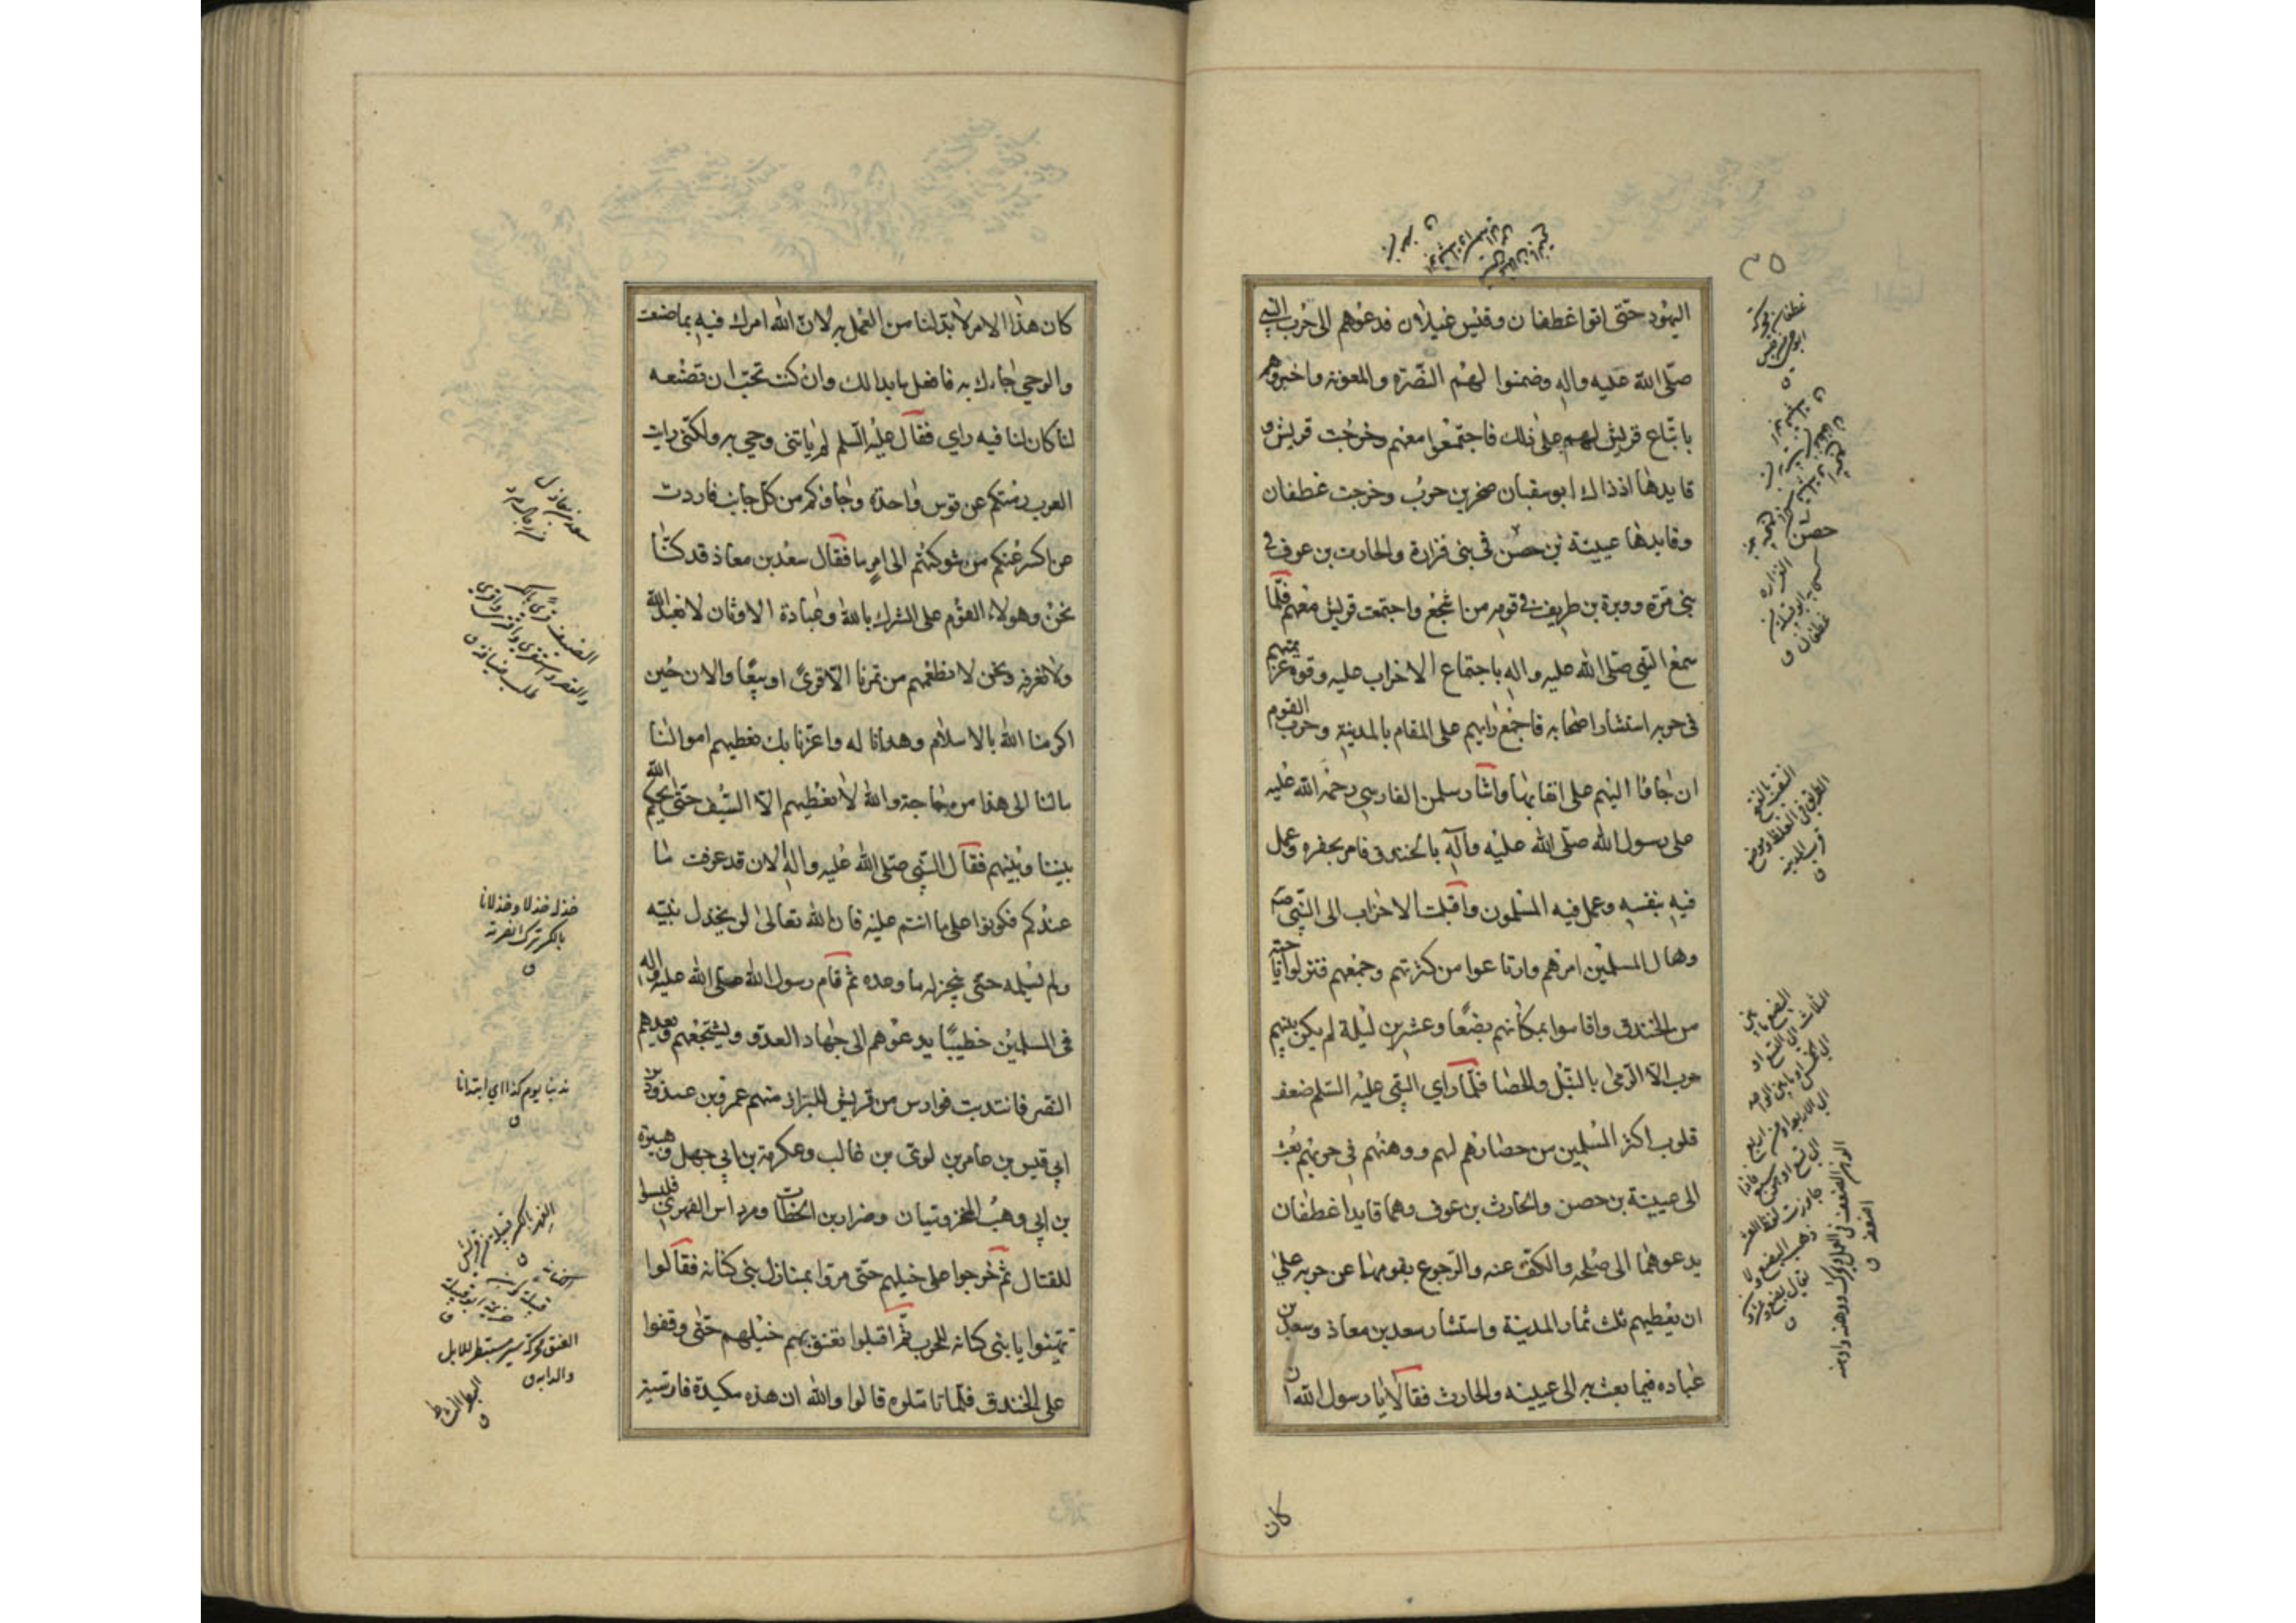 اليهود حتى اتوا غطفان وقيس غيلان فدعوهم الى حرب النبي
صلى الله عليه واله وضمنوا لهم النصرة والمعونة واخبروهم
باتباع قريش لهم على ذلك فاجتمعوا معهم وخرجت قريش و
قايدها اذذاك ابوسفيان صخر بن حرب وخرجت غطفان
وقايدها عيينة بن حصن في بني فزارة والحارث بن عوف في
بني مرة ووبرة بن طريف في قومه من اشجع واجتمعت قريش معهم فلما
سمع النبي صلى الله عليه واله باجتماع الاحزاب عليه وقوة عزيمتهم
في حربه استشار اصحابه فاجمع رايهم على المقام بالمدينة وحرب القوم
ان جاؤا اليهم على انقابها واشار سلمن الفارسي رحمة الله عليه
على رسول الله صلى الله عليه وآله بالخندق فامر بحفره وعمل
فيه بنفسه وعمل فيه المسلمون واقبلت الاحزاب الى النبي صم
وهال المسلمين امرهم وارتاعوا من كثرتهم وجمعهم فنزلوا ناحية
من الخندق واقاموا بمكانهم بضعا وعشرين ليلة لم يكن بينهم
حرب الا الرمى بالنبل والحصا فلما راي النبي عليه السلم ضعف
قلوب اكثر المسلمين من حصارهم لهم ووهنهم في حربهم بعث
الى عيينة بن حصن والحارث بن عوف وهما قايدا غطفان
يدعوهما الى صلحه والكف عنه والرجوع بقومهما عن حربه على
ان يعطيهم ثلث ثمار المدينة واستشار سعد بن معاذ وسعد بن
عباده فيما بعث به الى عيينه والحارث فقالا يا رسول الله ان
كان
غطفان محركة
حصن
النقب بالفتح
كان هذا الامر لا بد لنا من العمل به لان الله امرك فيه بما صنعت
والوحي جاءك به فافعل ما بدا لك وان كنت تحب ان تصنعه
لنا كان لنا فيه راي فقال عليه السلم لم ياتني وحي به ولكني رايت
العرب رمتكم عن قوس واحدة وجاؤكم من كل جانب فاردت
ان اكسر عنكم من شوكتهم الى امر ما فقال سعد بن معاذ قد كنا
نحن وهولاء القوم على الشرك بالله وعبادة الاوثان لا نعبد الله
ولا نعرفه ونحن لا نطعمهم من تمرنا الا قرى او بيعا والان حين
اكرمنا الله بالاسلام وهدانا له واعزنا بك نعطيهم اموالنا
مالنا الى هذا من حاجة والله لا نعطيهم الا السيف حتى يحكم الله
بيننا وبينهم فقال النبي صلى الله عليه واله الان قد عرفت ما
عندكم فكونوا على ما انتم عليه فان الله تعالى لن يخذل نبيه
ولم يسلمه حتى ينجز له ما وعده ثم قام رسول الله صلى الله عليه واله
في المسلمين خطيبا يدعوهم الى جهاد العدو ويشجعهم ويعدهم
النصر فانتدبت فوارس من قريش للبراز منهم عمرو بن عبدود بن
ابي قيس بن عامر بن لوي بن غالب وعكرمة بن ابي جهل وهبيرة
بن ابي وهب المخزوميان وضرار بن الخطاب ومرداس الفهري فلبسوا
للقتال ثم خرجوا على خيلهم حتى مروا بمنازل بني كنانه فقالوا
تهيئوا يا بني كنانه للحرب ثم اقبلوا تعنق بهم خيلهم حتى وقفوا
على الخندق فلما تاملوه قالوا والله ان هذه مكيدة فارسية
خذله خذلا وخذلانا
بالكسر ترك نصرته
ن
العنق محركة سير مسبطر للابل
والدابه ن